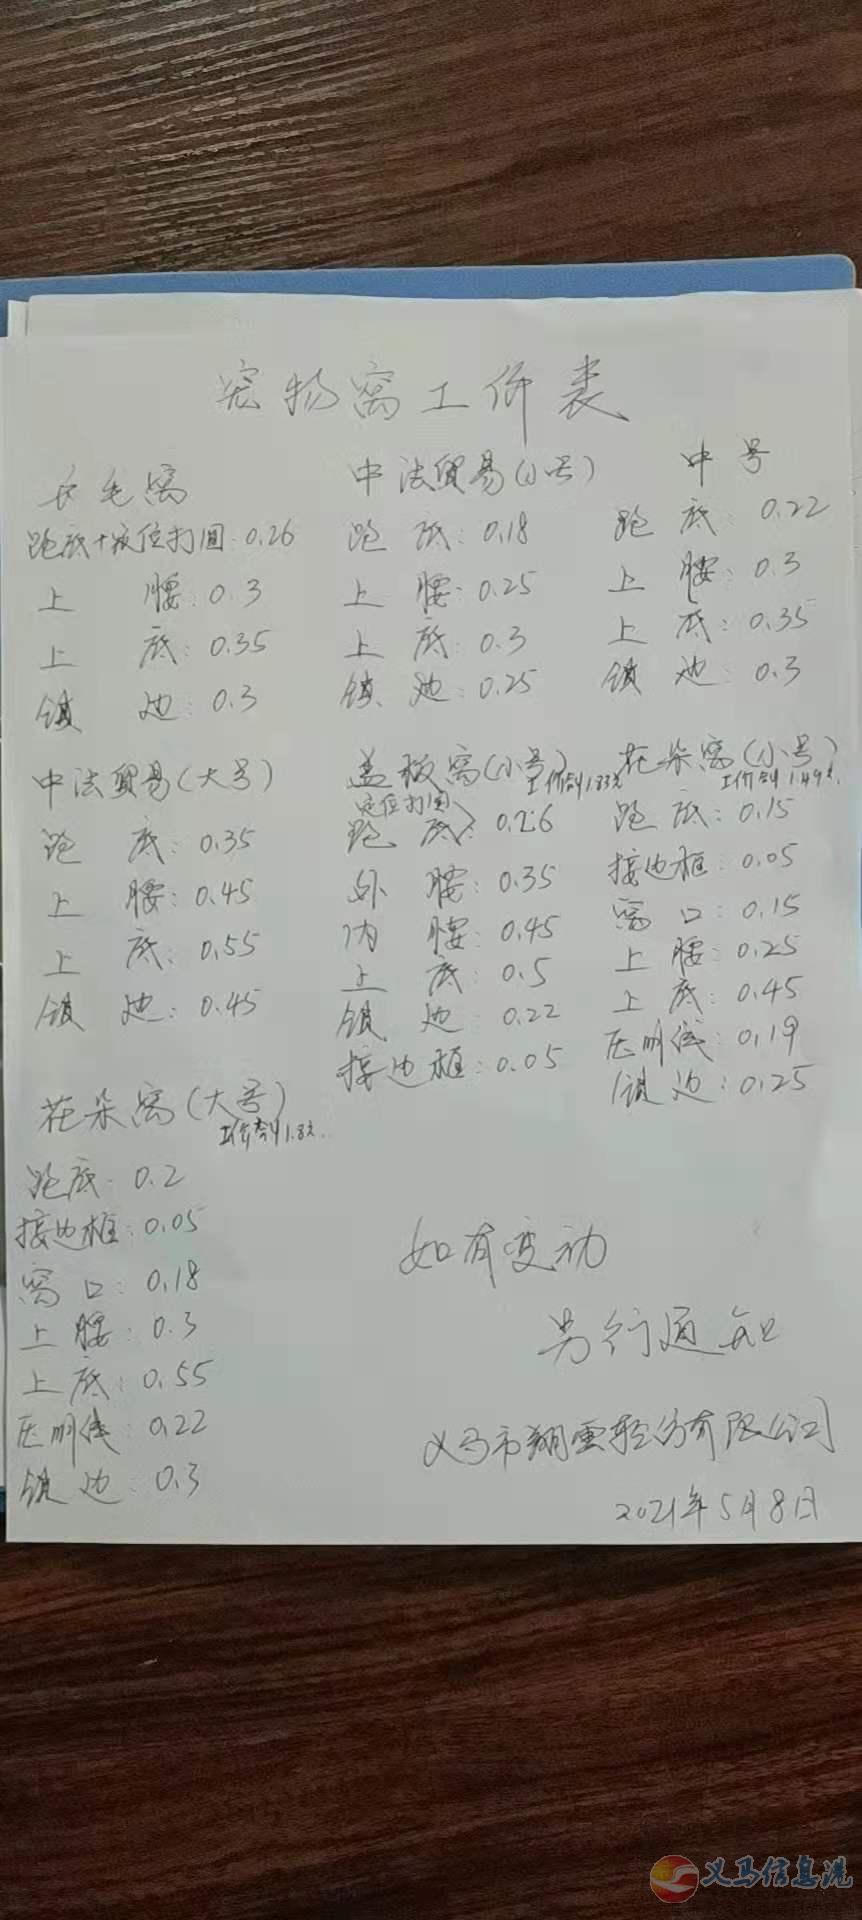 宠物窝工价表
长毛窝
跑底+定位打围:0.26
上 腰:0.3
上 底:0.35
锁 边:0.3
中法贸易(小号)
跑 底:0.18
上 腰:0.25
上 底:0.3
锁 边:0.25
中号
跑 底:0.22
上 腰:0.3
上 底:0.35
锁 边:0.3
中法贸易(大号)
跑 底:0.35
上 腰:0.45
上 底:0.55
锁 边:0.45
盖板窝(小号)
工价合计1.83元
定位打围
跑 底:0.26
外 腰:0.35
内 腰:0.45
上 底:0.5
锁 边:0.22
接边框:0.05
花朵窝(小号)
工价合计1.49元.
跑 底:0.15
接边框:0.05
窝 口:0.15
上 腰:0.25
上 底:0.45
压明线:0.19
锁 边:0.25
花朵窝(大号)
工价合计1.8元.
跑底:0.2
接边框:0.05
窝 口:0.18
上 腰:0.3
上 底:0.55
压明线:0.22
锁 边:0.3
如有变动
另行通知
义马市翔云轻纺有限公司
2021年5月8日
义马信息港